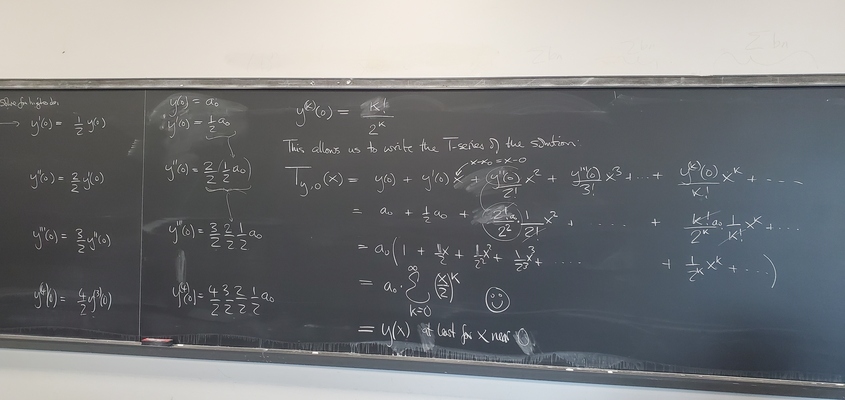 Solve for higher der.
→ y'(0) = 1/2 y(0)
y''(0) = 2/2 y'(0)
y'''(0) = 3/2 y''(0)
y⁽⁴⁾(0) = 4/2 y⁽³⁾(0)
y(0) = a₀
y'(0) = 1/2 a₀
y''(0) = 2/2 (1/2 a₀)
y'''(0) = 3/2 2/2 1/2 a₀
y⁽⁴⁾(0) = 4/2 3/2 2/2 1/2 a₀
y⁽ᵏ⁾(0) = k!/2ᵏ
This allows us to write the T-series of the solution:
x-x₀ = x-0
T_y,0(x) = y(0) + y'(0) x + y''(0)/2! x² + y'''(0)/3! x³ + ... + y⁽ᵏ⁾(0)/k! xᵏ + ----
= a₀ + 1/2 a₀ + 2! a₀/2² 1/2! x² + ..... + k! a₀/2ᵏ 1/k! xᵏ + ...
= a₀ (1 + 1/2 x + 1/2² x² + 1/2³ x³ + ..... + 1/2ᵏ xᵏ + ...)
= a₀ · ∞ Σ k=0 (x/2)ᵏ
= y(x) at least for x near 0